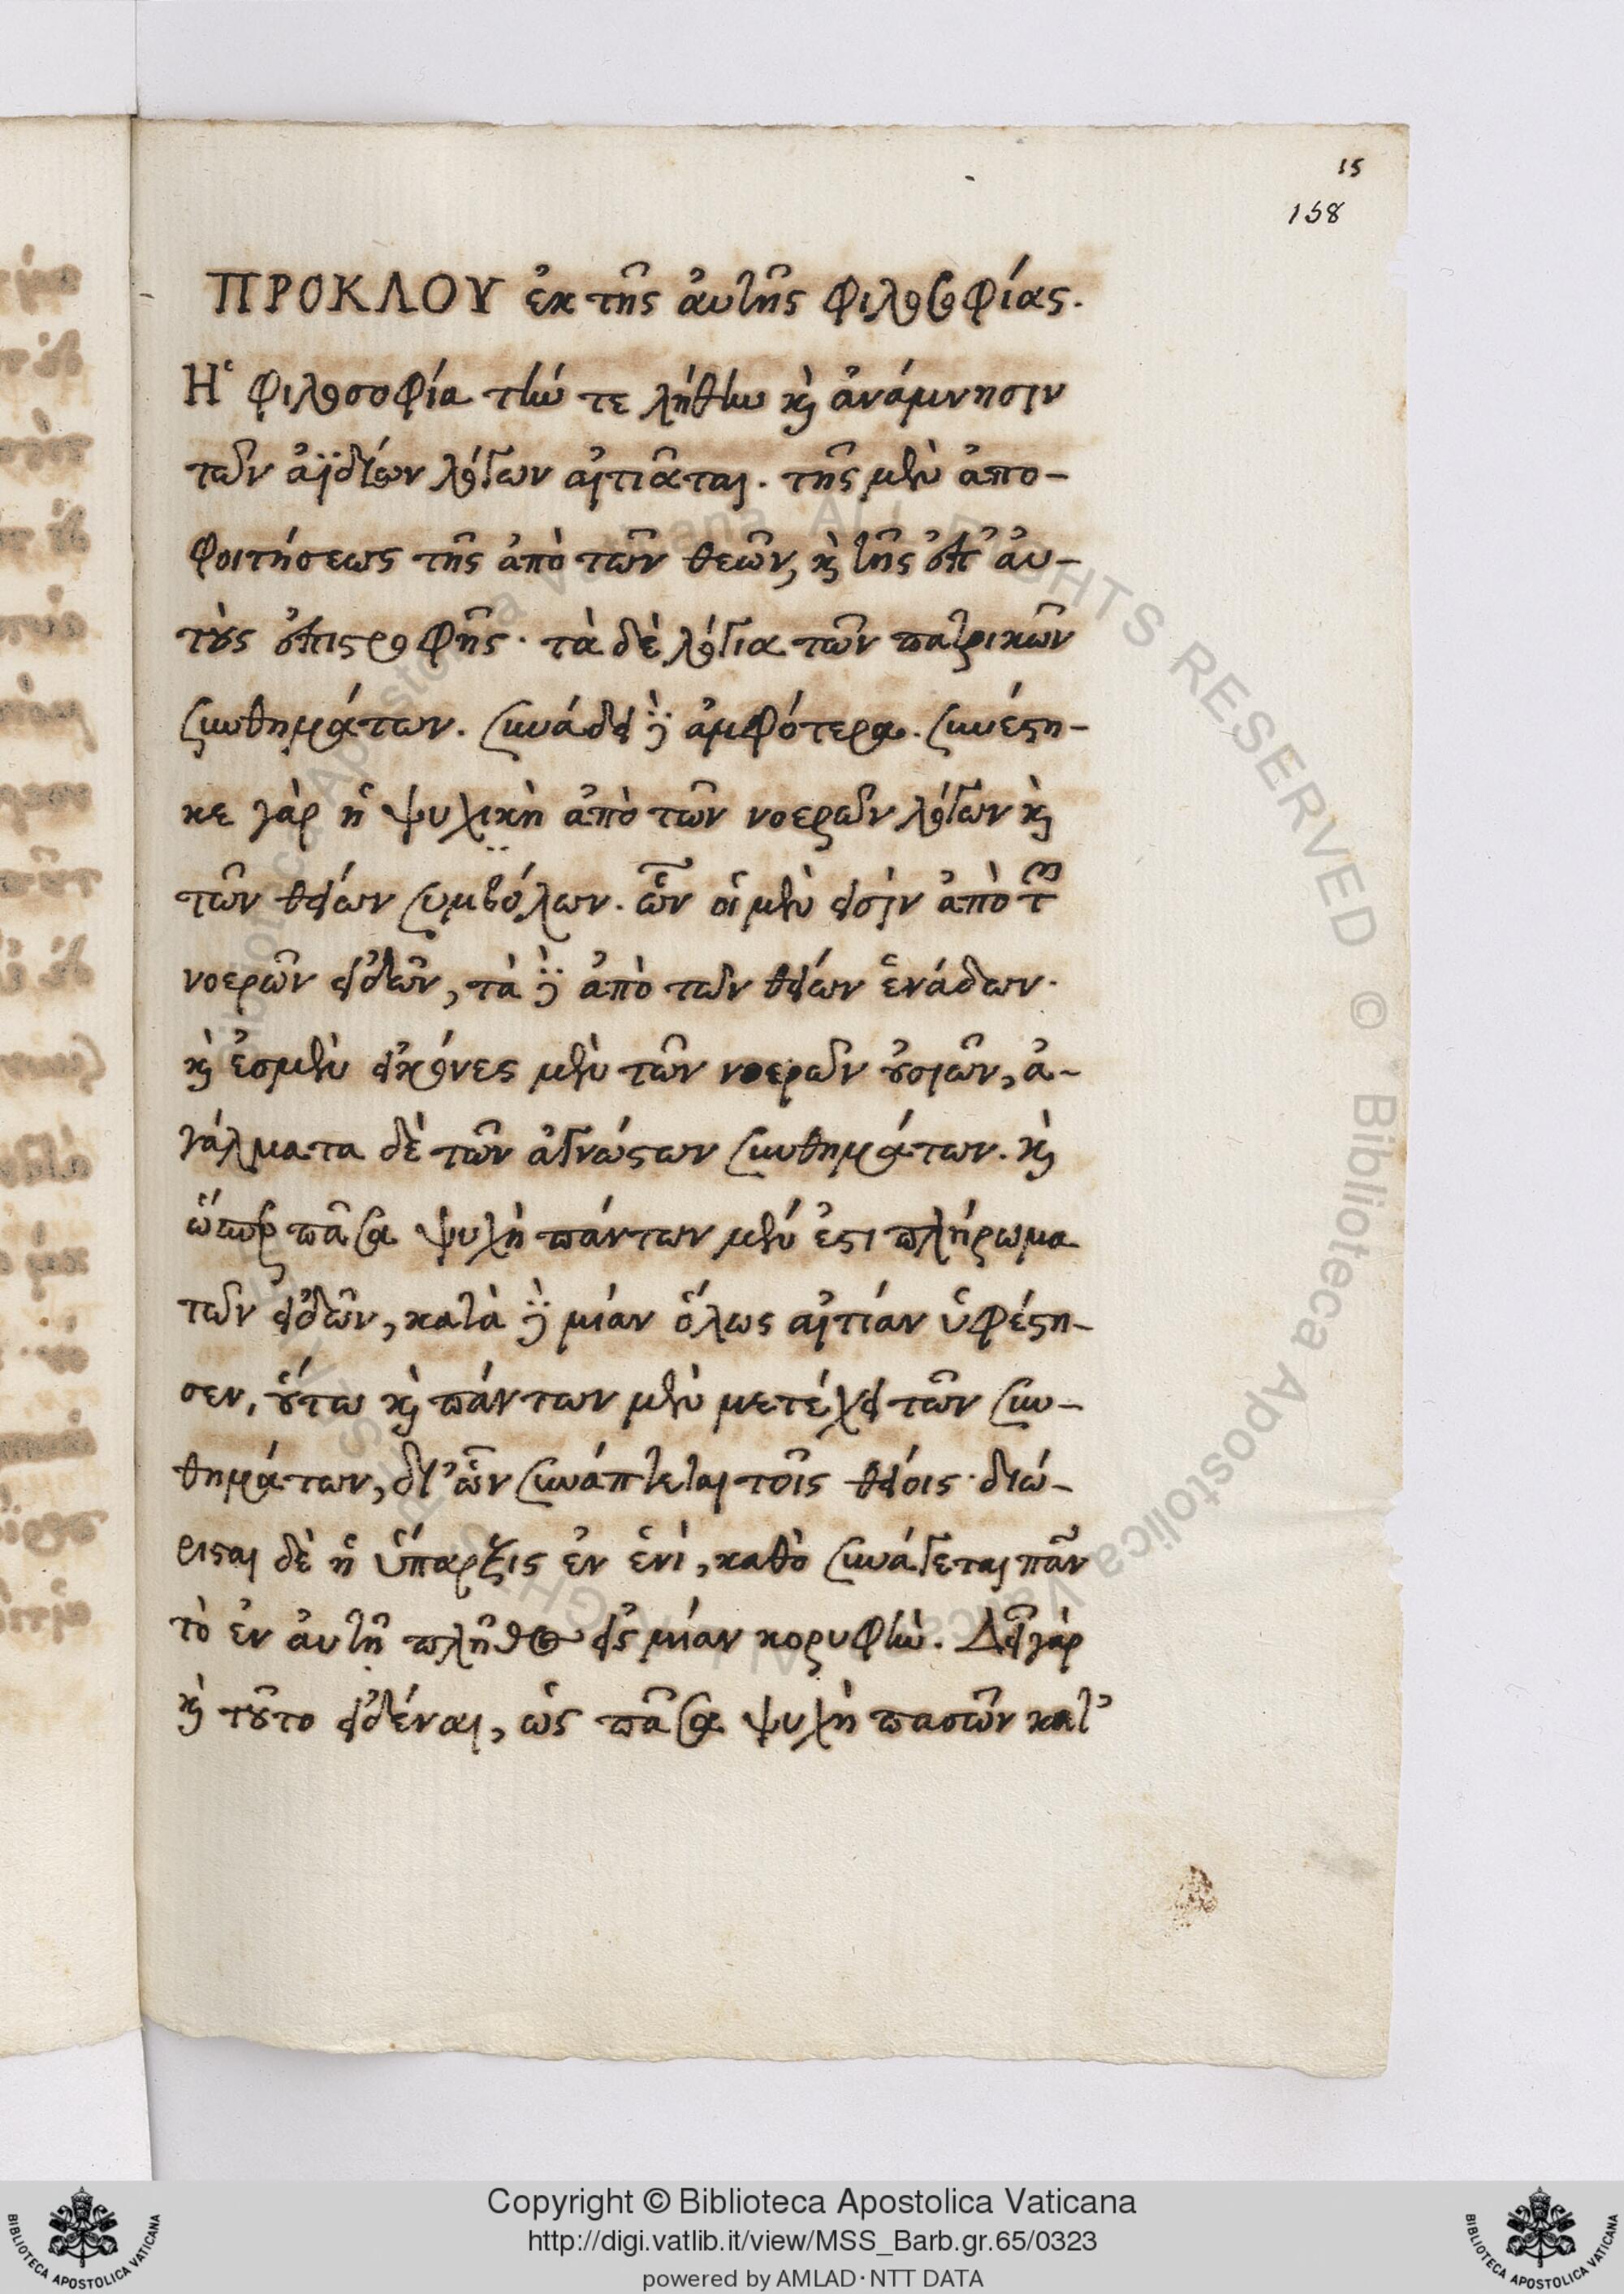 15
158
ΠΡΟΚΛΟΥ ἐκ τῆς ἀυτῆς φιλοσοφίας.
Ἡ φιλοσοφία τήν τε λήθην καὶ ἀνάμνησιν
τῶν ἀϊδίων λόγων αἰτιᾶται. τῆς μὲν ἀπο-
φοιτήσεως τῆς ἀπὸ τῶν θεῶν, καὶ τῆς ἐπ᾽ ἀυ-
τοὺς ἐπιστροφῆς· τὰ δὲ λόγια τῶν πατρικῶν
συνθημάτων. συνάδει δὲ ἀμφότερα. συνέστη-
κε γὰρ ἡ ψυχικὴ ἀπὸ τῶν νοερῶν λόγων καὶ
τῶν θείων συμβόλων. ὧν οἱ μὲν εἰσὶν ἀπὸ τῶν
νοερῶν εἰδῶν, τὰ δὲ ἀπὸ τῶν θείων ἑνάδων·
καὶ ἐσμὲν εἰκόνες μὲν τῶν νοερῶν οὐσιῶν, ἀ-
γάλματα δὲ τῶν ἀγνώστων συνθημάτων. καὶ
ὥσπερ πᾶσα ψυχὴ πάντων μέν ἐστι πλήρωμα
τῶν εἰδῶν, κατὰ δὲ μίαν ὅλως αἰτίαν ὑφέστη-
σεν, οὕτω καὶ πάντων μὲν μετέχει τῶν συν-
θημάτων, δι᾽ ὧν συνάπτεται τοῖς θείοις· διώ-
ρισται δὲ ἡ ὕπαρξις ἐν ἑνὶ, καθὸ συνάγεται πᾶν
τὸ ἐν ἀυτῇ πλῆθος εἰς μίαν κορυφὴν. Δεῖ γὰρ
καὶ τοῦτο εἰδέναι, ὡς πᾶσα ψυχὴ πασῶν κατ᾽
Copyright © Biblioteca Apostolica Vaticana
http://digi.vatlib.it/view/MSS_Barb.gr.65/0323
powered by AMLAD·NTT DATA
BIBLIOTECA APOSTOLICA VATICANA
BIBLIOTECA APOSTOLICA VATICANA